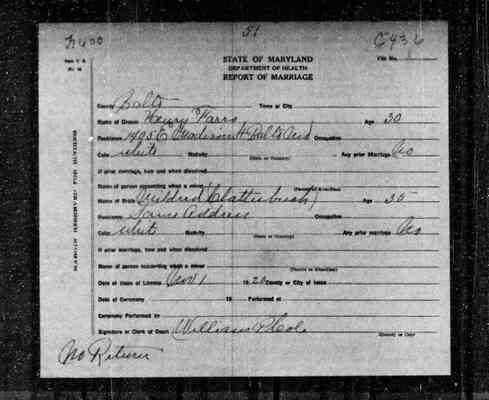 51
STATE OF MARYLAND
DEPARTMENT OF HEALTH
REPORT OF MARRIAGE
File No.
County Balto Town or City
Name of Groom Henry Farro Age 30
Residence 1405 E Madison St Balto Md Occupation
Color white Nativity (State or Country) Any prior Marriage No
If prior marriage, how and when dissolved
Name of person consenting when a minor (Parent or Guardian)
Name of Bride Mildred Clatterbuck Age 35
Residence Same Address Occupation
Color white Nativity (State or Country) Any prior marriage No
If prior marriage, how and when dissolved
Name of person consenting when a minor (Parent or Guardian)
Date of Issue of License Nov 1 19 20 County or City of Issue
Date of Ceremony 19 Performed at
Ceremony Performed by
Signature or Clerk of Court William (County or City)
No Return
MARGIN RESERVED FOR BINDING